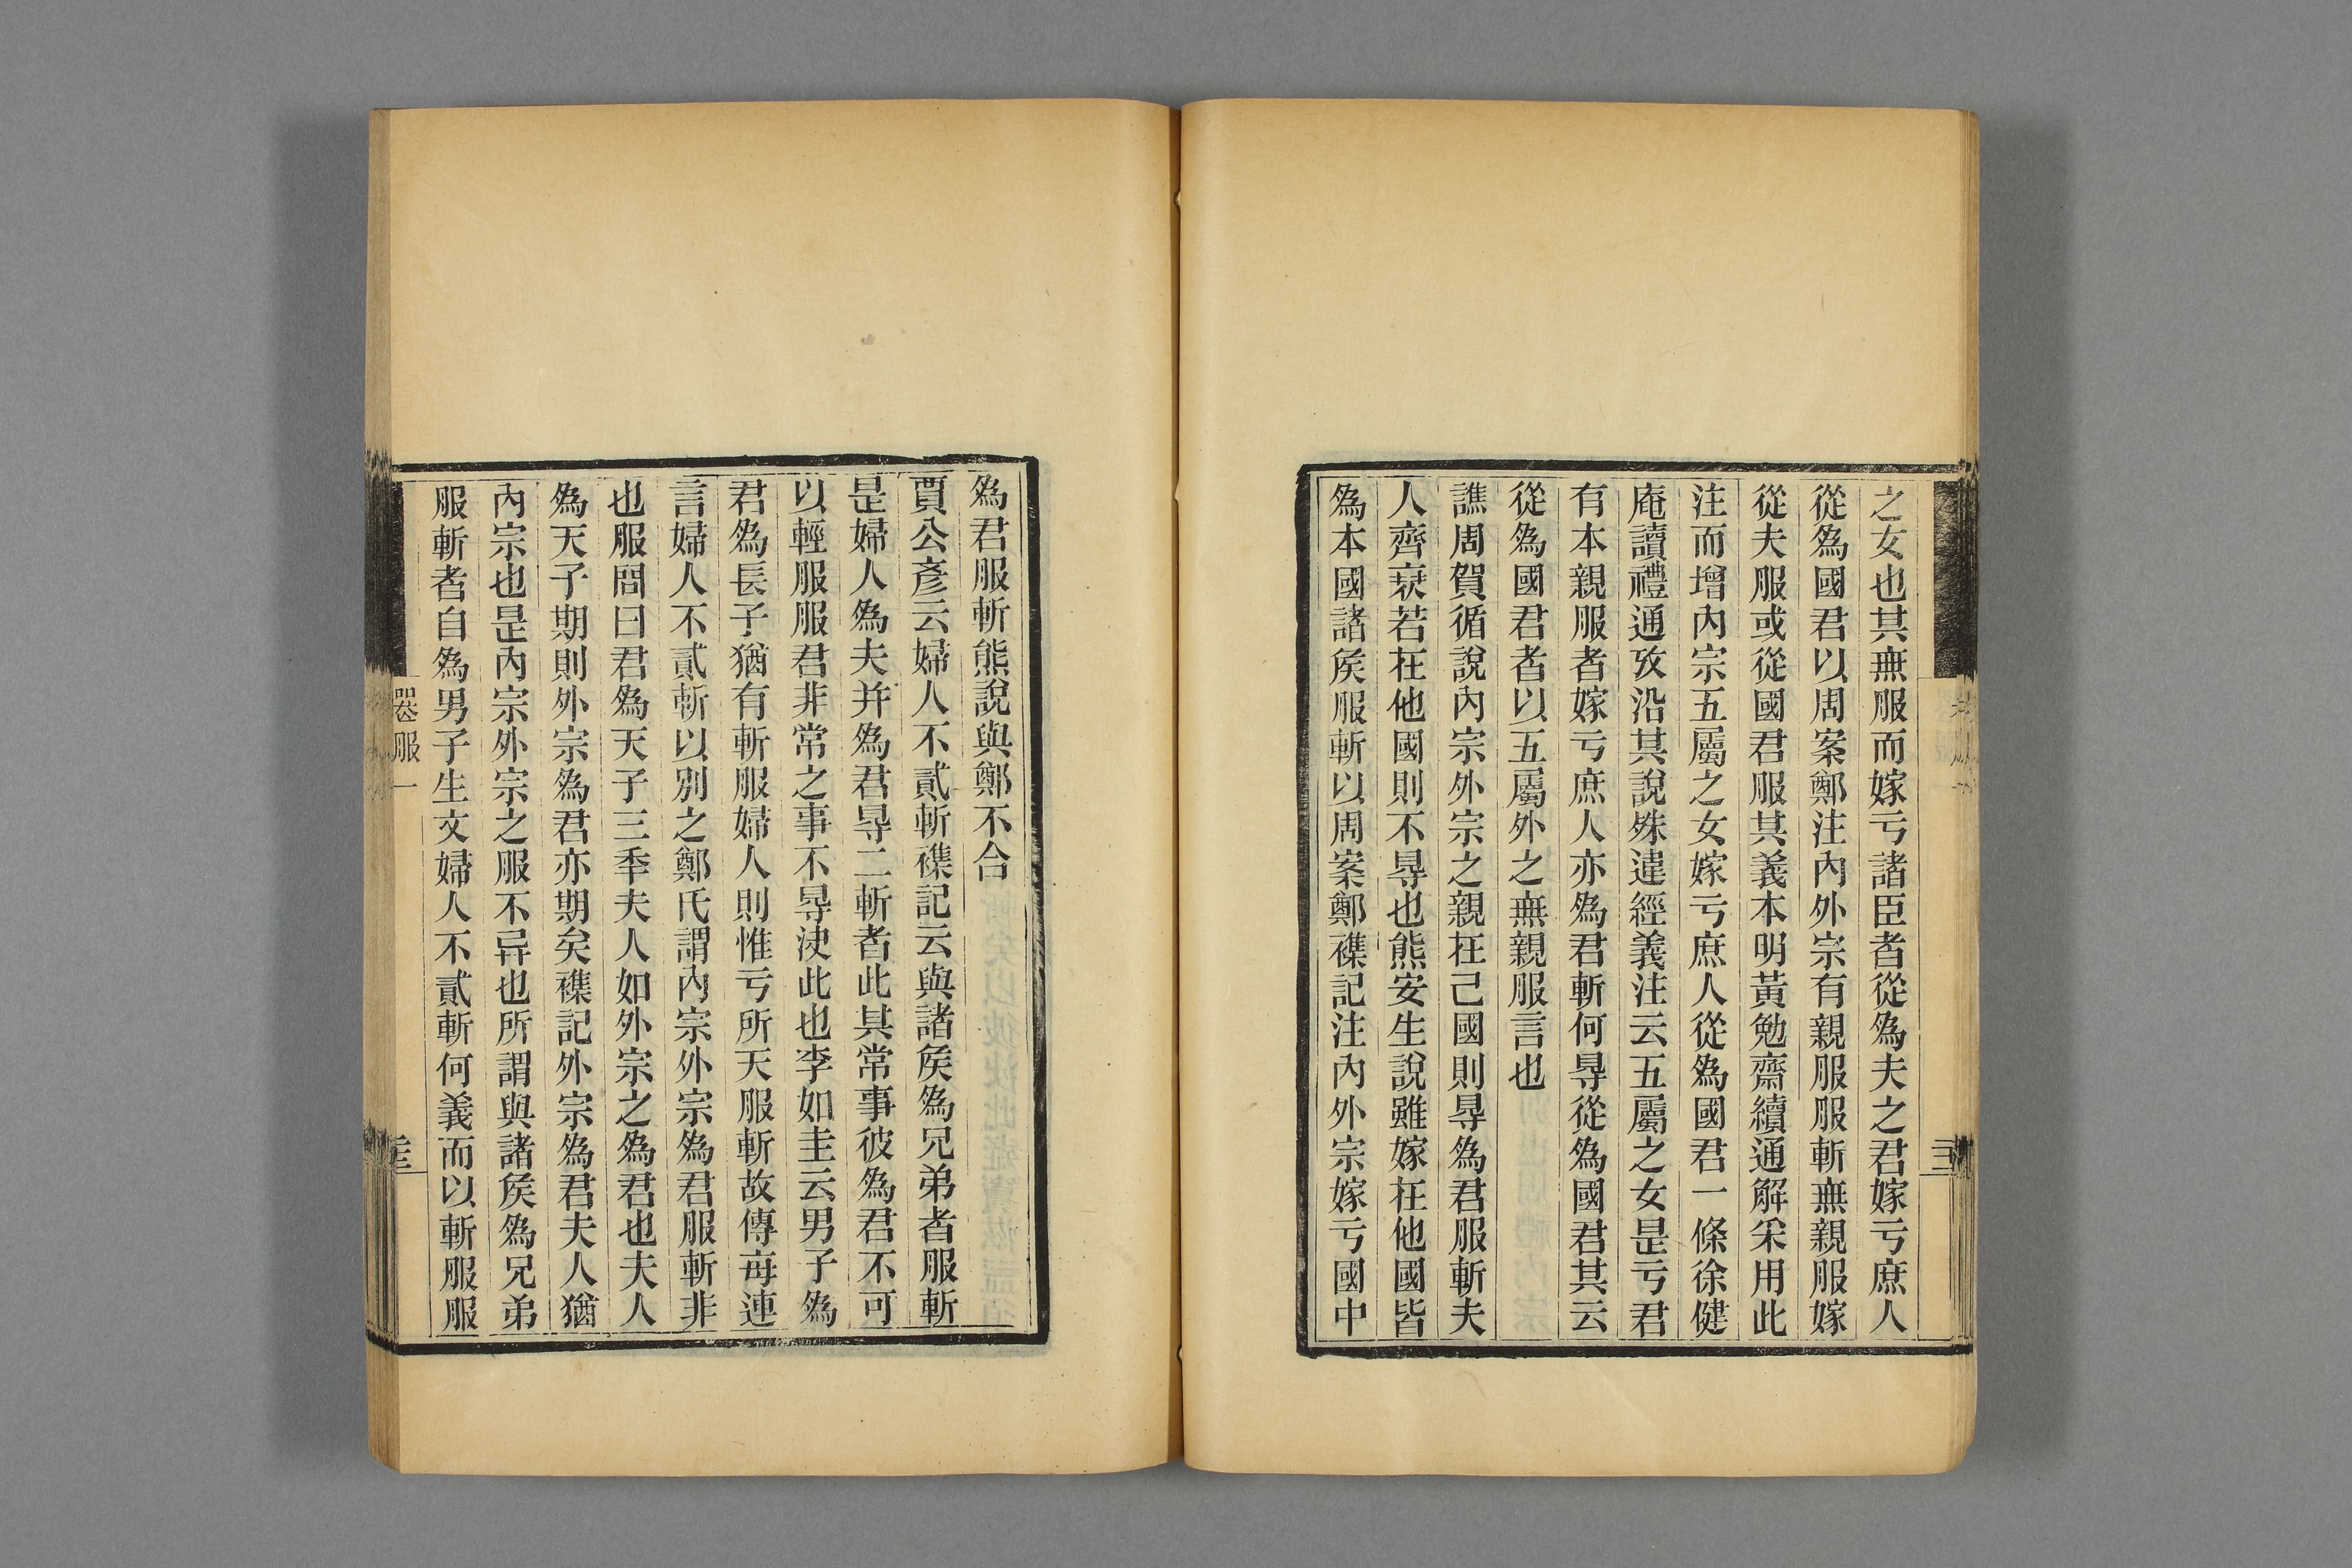 之女也其無服而嫁亏諸臣者從爲夫之君嫁亏庶人
從爲國君以周案鄭注內外宗有親服服斬無親服嫁
從夫服或從國君服其義本明黃勉齋續通解采用此
注而增內宗五屬之女嫁亏庶人從爲國君一條徐健
庵讀禮通攷沿其說殊違經義注云五屬之女是亏君
有本親服者嫁亏庶人亦爲君斬何㝵從爲國君其云
從爲國君者以五屬外之無親服言也
譙周賀循說內宗外宗之親在己國則㝵爲君服斬夫
人齊衰若在他國則不㝵也熊安生說雖嫁在他國皆
爲本國諸矦服斬以周案鄭襍記注內外宗嫁亏國中
爲君服斬熊說與鄭不合
賈公彥云婦人不貳斬襍記云與諸矦爲兄弟者服斬
是婦人爲夫并爲君㝵二斬者此其常事彼爲君不可
以輕服服君非常之事不㝵決此也李如圭云男子爲
君爲長子猶有斬服婦人則惟亏所天服斬故傳每連
言婦人不貳斬以別之鄭氏謂內宗外宗爲君服斬非
也服問曰君爲天子三季夫人如外宗之爲君也夫人
爲天子期則外宗爲君亦期矣襍記外宗爲君夫人猶
內宗也是內宗外宗之服不异也所謂與諸矦爲兄弟
服斬者自爲男子生文婦人不貳斬何義而以斬服服
喪服一